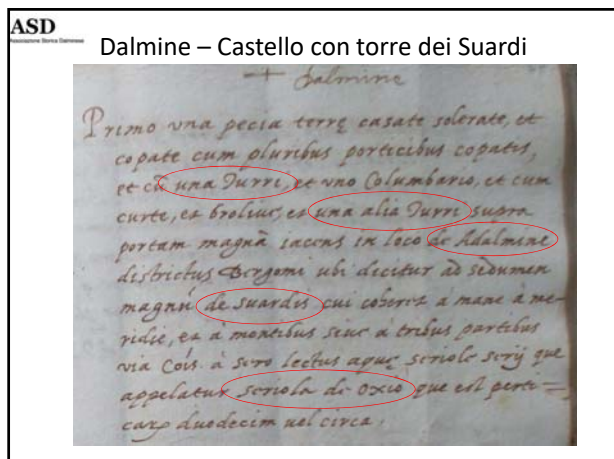 ASD
Associazione Storica Dalminese
Dalmine – Castello con torre dei Suardi
+ Dalmine
Primo una pecia terrę casate solerate, et
copate cum pluribus porticibus copatis,
et cũ una Turri, et uno Columbario, et cum
curte, et broliuc, et una alia Turri supra
portam magnã iacens in loco de Adalmine
districtus Bergomi ubi dicitur ad sedumen
magnũ de suardis cui coheret à mane à me-
ridie, et à montibus siue à tribus partibus
via Cõis. à sero lectus aquę seriolę serij que
appelatur seriola de oxio que est perti=
carũ duodecim uel circa.